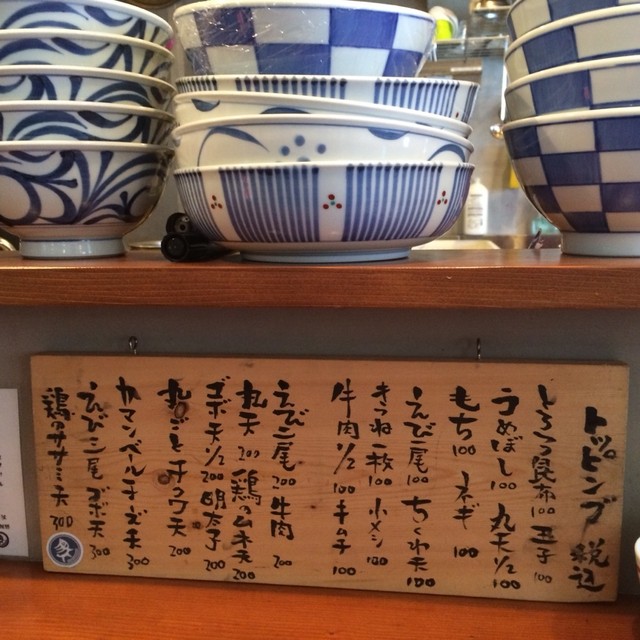 トッピング 税込
とろろ昆布 100 玉子 100
うめぼし 100 丸天1/2 100
もち 100 ネギ 100
えび一尾 100 ちくわ天 100
きつね一枚 100 小メシ 100
牛肉1/2 100 キムチ 100
えび二尾 200 牛肉 200
丸天 200 鶏のムネ天 200
ゴボ天1/2 200 明太子 200
丸ごとチクワ天 200
カマンベールチーズ天 300
えび二尾ゴボ天 300
鶏のササミ天 300